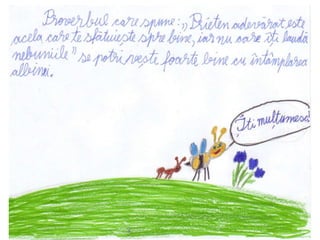 Proverbul care spune: „Prieten adevărat este
acela care te sfătuiește spre bine, iar nu care îți laudă
nebuniile" se potrivește foarte bine cu întâmplarea
albinei.
Îți mulțumesc!